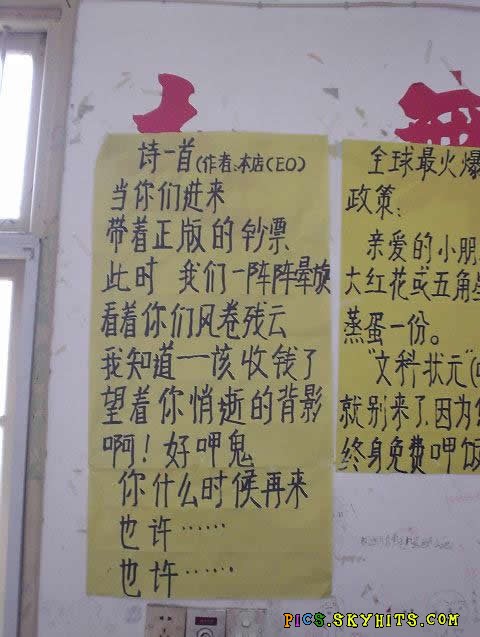 诗一首(作者:本店CEO)
当你们进来
带着正版的钞票
此时 我们一阵阵晕旋
看着你们风卷残云
我知道一该收钱了
望着你悄逝的背影
啊！好呷鬼
你什么时候再来
也许……
也许……
全球最火爆
政策：
亲爱的小朋
大红花或五角星
蒸蛋一份。
"文科状元"(
就别来了,因为
终身免费呷饭
PICS.SKYHITS.COM